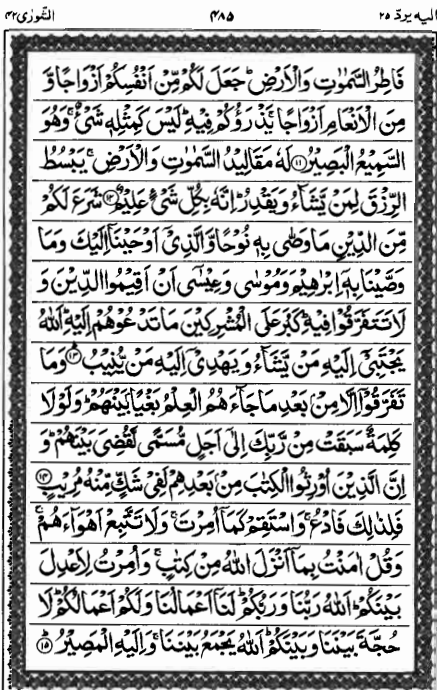 الیه یردّ ۲۵ ۴۸۵ الشّورٰی ۴۲
فَاطِرُ السَّمٰوٰتِ وَالْاَرْضِ ؕ جَعَلَ لَكُمْ مِّنْ اَنْفُسِكُمْ اَزْوَاجًا وَّ
مِنَ الْاَنْعَامِ اَزْوَاجًا ۚ یَذْرَؤُكُمْ فِیْهِ ؕ لَیْسَ كَمِثْلِهٖ شَیْءٌ ۚ وَهُوَ
السَّمِیْعُ الْبَصِیْرُ ﴿۱۱﴾ لَهٗ مَقَالِیْدُ السَّمٰوٰتِ وَالْاَرْضِ ۚ یَبْسُطُ
الرِّزْقَ لِمَنْ یَّشَآءُ وَیَقْدِرُ ؕ اِنَّهٗ بِكُلِّ شَیْءٍ عَلِیْمٌ ﴿۱۲﴾ شَرَعَ لَكُمْ
مِّنَ الدِّیْنِ مَا وَصّٰی بِهٖ نُوْحًا وَّالَّذِیْۤ اَوْحَیْنَاۤ اِلَیْكَ وَمَا
وَصَّیْنَا بِهٖۤ اِبْرٰهِیْمَ وَمُوْسٰی وَعِیْسٰۤی اَنْ اَقِیْمُوا الدِّیْنَ وَ
لَا تَتَفَرَّقُوْا فِیْهِ ؕ كَبُرَ عَلَی الْمُشْرِكِیْنَ مَا تَدْعُوْهُمْ اِلَیْهِ ؕ اَللّٰهُ
یَجْتَبِیْۤ اِلَیْهِ مَنْ یَّشَآءُ وَیَهْدِیْۤ اِلَیْهِ مَنْ یُّنِیْبُ ﴿۱۳﴾ وَمَا
تَفَرَّقُوْۤا اِلَّا مِنْۢ بَعْدِ مَا جَآءَهُمُ الْعِلْمُ بَغْیًۢا بَیْنَهُمْ ؕ وَلَوْلَا
كَلِمَةٌ سَبَقَتْ مِنْ رَّبِّكَ اِلٰۤی اَجَلٍ مُّسَمًّی لَّقُضِیَ بَیْنَهُمْ ؕ وَ
اِنَّ الَّذِیْنَ اُوْرِثُوا الْكِتٰبَ مِنْۢ بَعْدِهِمْ لَفِیْ شَكٍّ مِّنْهُ مُرِیْبٍ ﴿۱۴﴾
فَلِذٰلِكَ فَادْعُ ۚ وَاسْتَقِمْ كَمَاۤ اُمِرْتَ ۚ وَلَا تَتَّبِعْ اَهْوَآءَهُمْ ۚ
وَقُلْ اٰمَنْتُ بِمَاۤ اَنْزَلَ اللّٰهُ مِنْ كِتٰبٍ ۚ وَاُمِرْتُ لِاَعْدِلَ
بَیْنَكُمْ ؕ اَللّٰهُ رَبُّنَا وَرَبُّكُمْ ؕ لَنَاۤ اَعْمَالُنَا وَلَكُمْ اَعْمَالُكُمْ ؕ لَا
حُجَّةَ بَیْنَنَا وَبَیْنَكُمْ ؕ اَللّٰهُ یَجْمَعُ بَیْنَنَا ۚ وَاِلَیْهِ الْمَصِیْرُ ﴿۱۵﴾